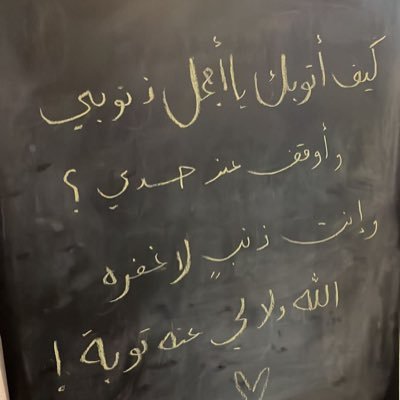 كيف أتوبك يا أجمل ذنوبي
وأوقف عند حدي ؟
وإنت ذنبٍ لا غفره
الله ولا لي عنه توبة !